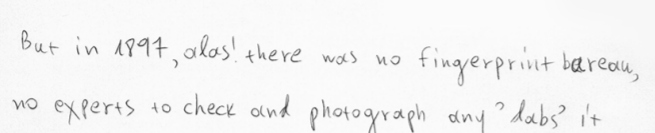 But in 1897, alas! there was no fingerprint bareau,
no experts to check and photograph any 'dabs' it